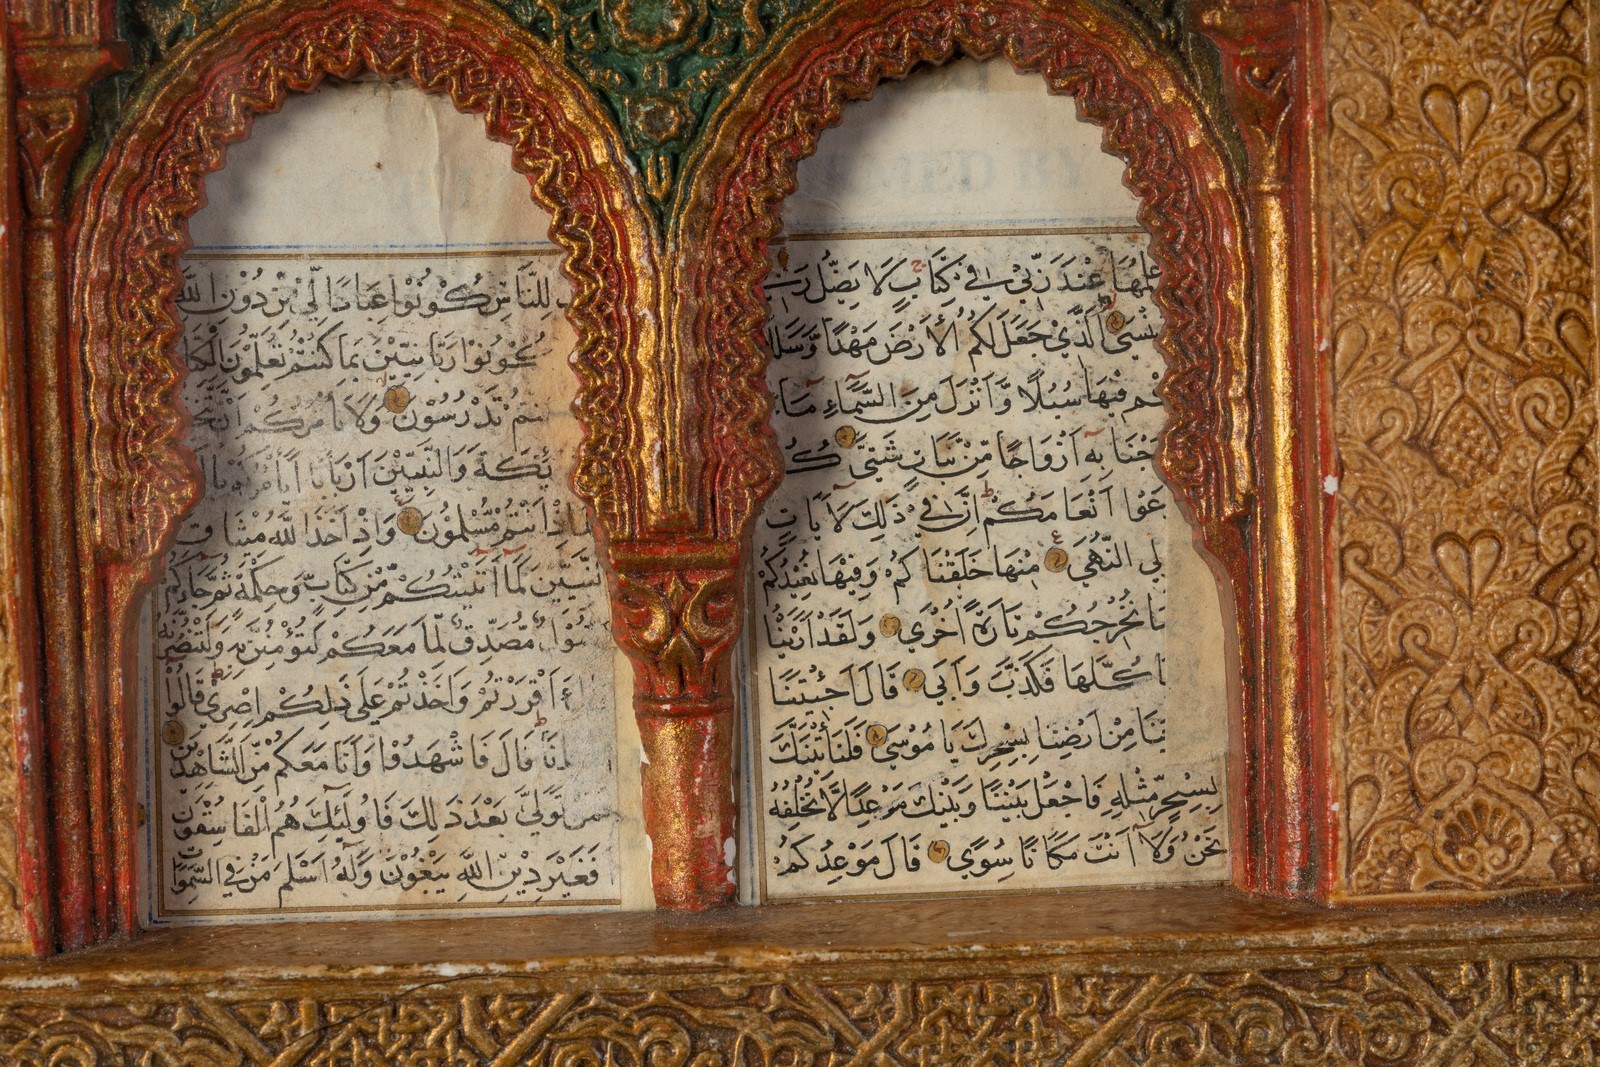 MED BY
علمها عند ربي في كتاب لا يضل
ينسى الذي جعل لكم الارض مهدا وسلك
كم فيها سبلا وانزل من السماء ماء
جنا به ازواجا من نبات شتى ك
عوا انعامكم ان في ذلك لايات
لي النهى منها خلقناكم وفيها نعيدكم
نخرجكم تارة اخرى ولقد ارينا
كلها فكذب وابى قال اجئتنا
نا من ارضنا بسحرك يا موسى فلنأتينك
بسحر مثله فاجعل بيننا وبينك موعدا لا نخلفه
نحن ولا انت مكانا سوى قال موعدكم
للناس كونوا عبادا لي من دون الله
كونوا ربانيين بما كنتم تعلمون الكتا
نتم تدرسون ولا يامركم ان تتخذ
ئكة والنبيين اربابا ايامركم با
اذ انتم مسلمون واذ اخذ الله ميثاق
النبيين لما اتيتكم من كتاب وحكمة ثم جاءكم
مصدق لما معكم لتؤمنن به ولتنصرنه
اقررتم واخذتم على ذلكم اصري قالوا
نا قال فاشهدوا وانا معكم من الشاهدين
تولى بعد ذلك فاولئك هم الفاسقون
فغير دين الله يبغون وله اسلم من في السموا